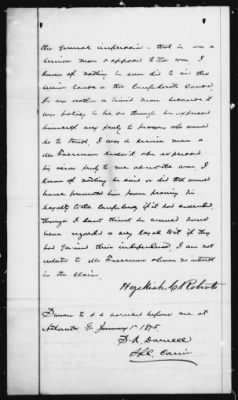 the general impression - that he was a
Union man & opposed to the war. I
know of nothing he ever did to aid the
Union Cause or the Confederate Cause.
he was rather a timid man however it
was policy to be so though he expressed
himself very freely to persons who
do to trust, I was a Union man &
Mr Freeman knew it & he expressed
his views freely to me about the war. I
know of nothing he said or did that would
have prevented him from proving his
loyalty to the Confederacy if it had succeeded
though I don't think he would have
been regarded a very loyal to it if they
had gained their independence. I am not
related to Mr Freeman & have no interest
in the claim.
Hezekiah C Roberts
Sworn to & subscribed before me at
Atlanta Ga January 1st 1875.
Spl. Com'r